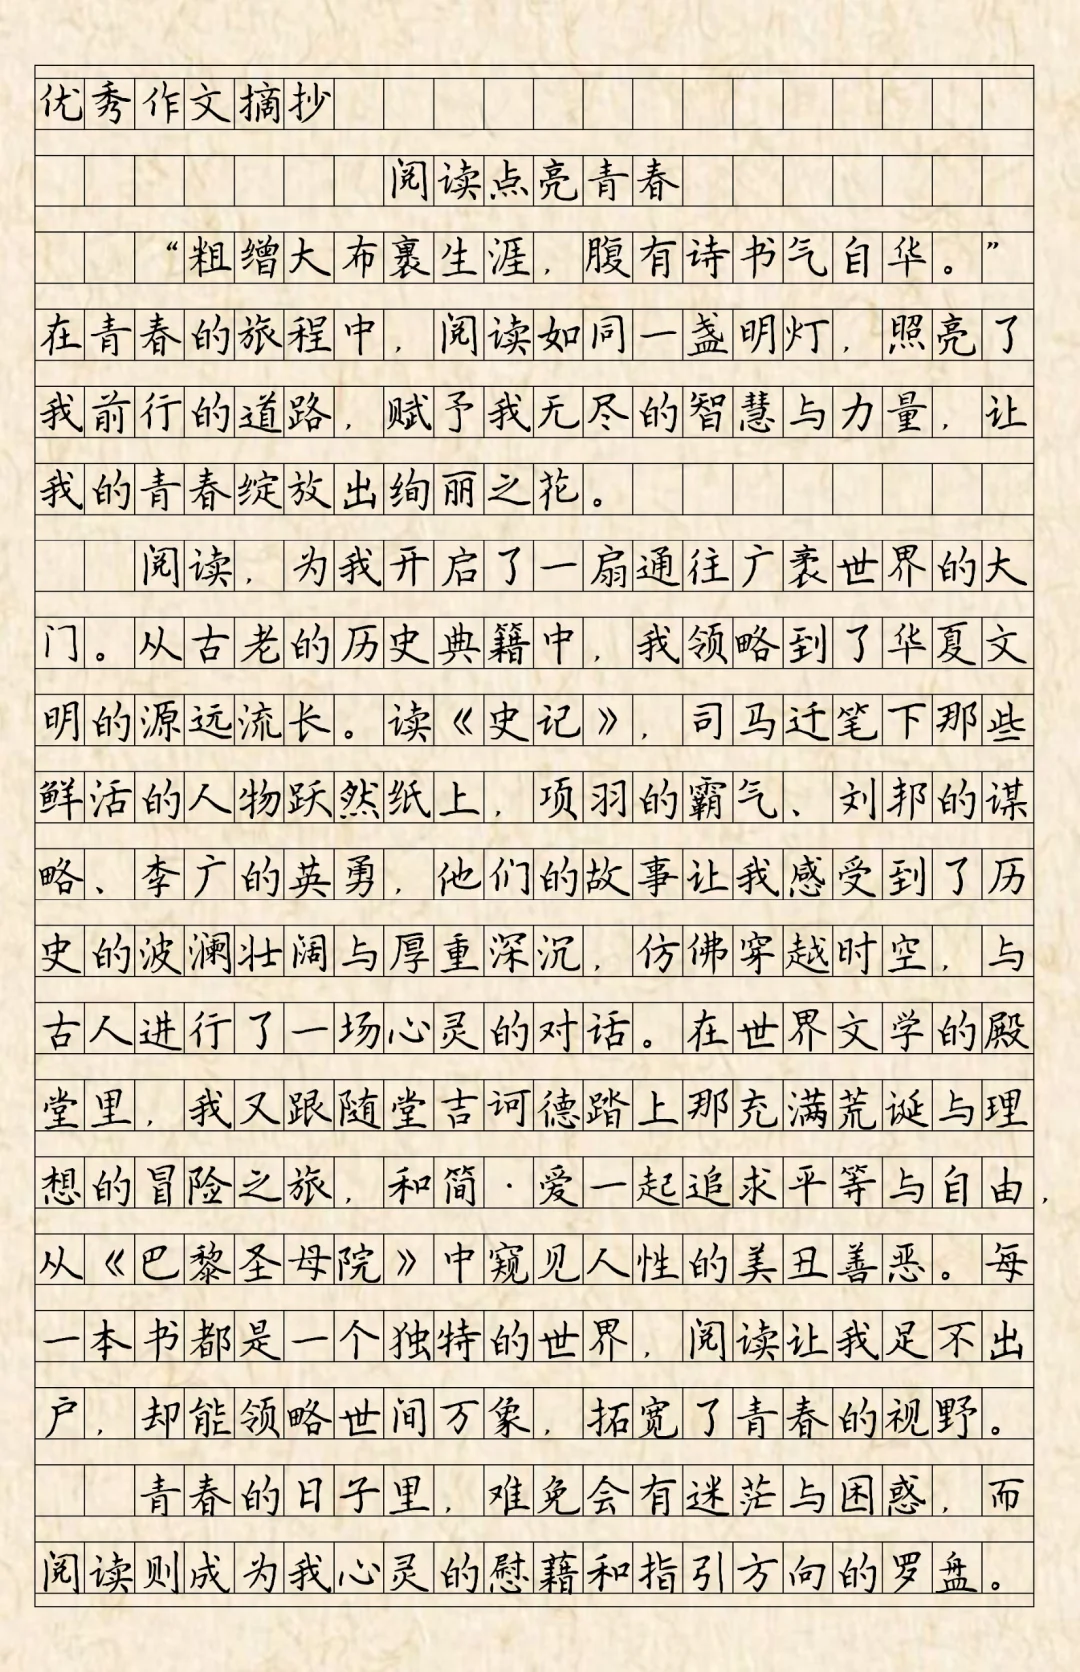 优秀作文摘抄
阅读点亮青春
“粗缯大布裹生涯，腹有诗书气自华。”
在青春的旅程中，阅读如同一盏明灯，照亮了
我前行的道路，赋予我无尽的智慧与力量，让
我的青春绽放出绚丽之花。
阅读，为我开启了一扇通往广袤世界的大
门。从古老的历史典籍中，我领略到了华夏文
明的源远流长。读《史记》，司马迁笔下那些
鲜活的人物跃然纸上，项羽的霸气、刘邦的谋
略、李广的英勇，他们的故事让我感受到了历
史的波澜壮阔与厚重深沉，仿佛穿越时空，与
古人进行了一场心灵的对话。在世界文学的殿
堂里，我又跟随堂吉诃德踏上那充满荒诞与理
想的冒险之旅，和简·爱一起追求平等与自由，
从《巴黎圣母院》中窥见人性的美丑善恶。每
一本书都是一个独特的世界，阅读让我足不出
户，却能领略世间万象，拓宽了青春的视野。
青春的日子里，难免会有迷茫与困惑，而
阅读则成为我心灵的慰藉和指引方向的罗盘。